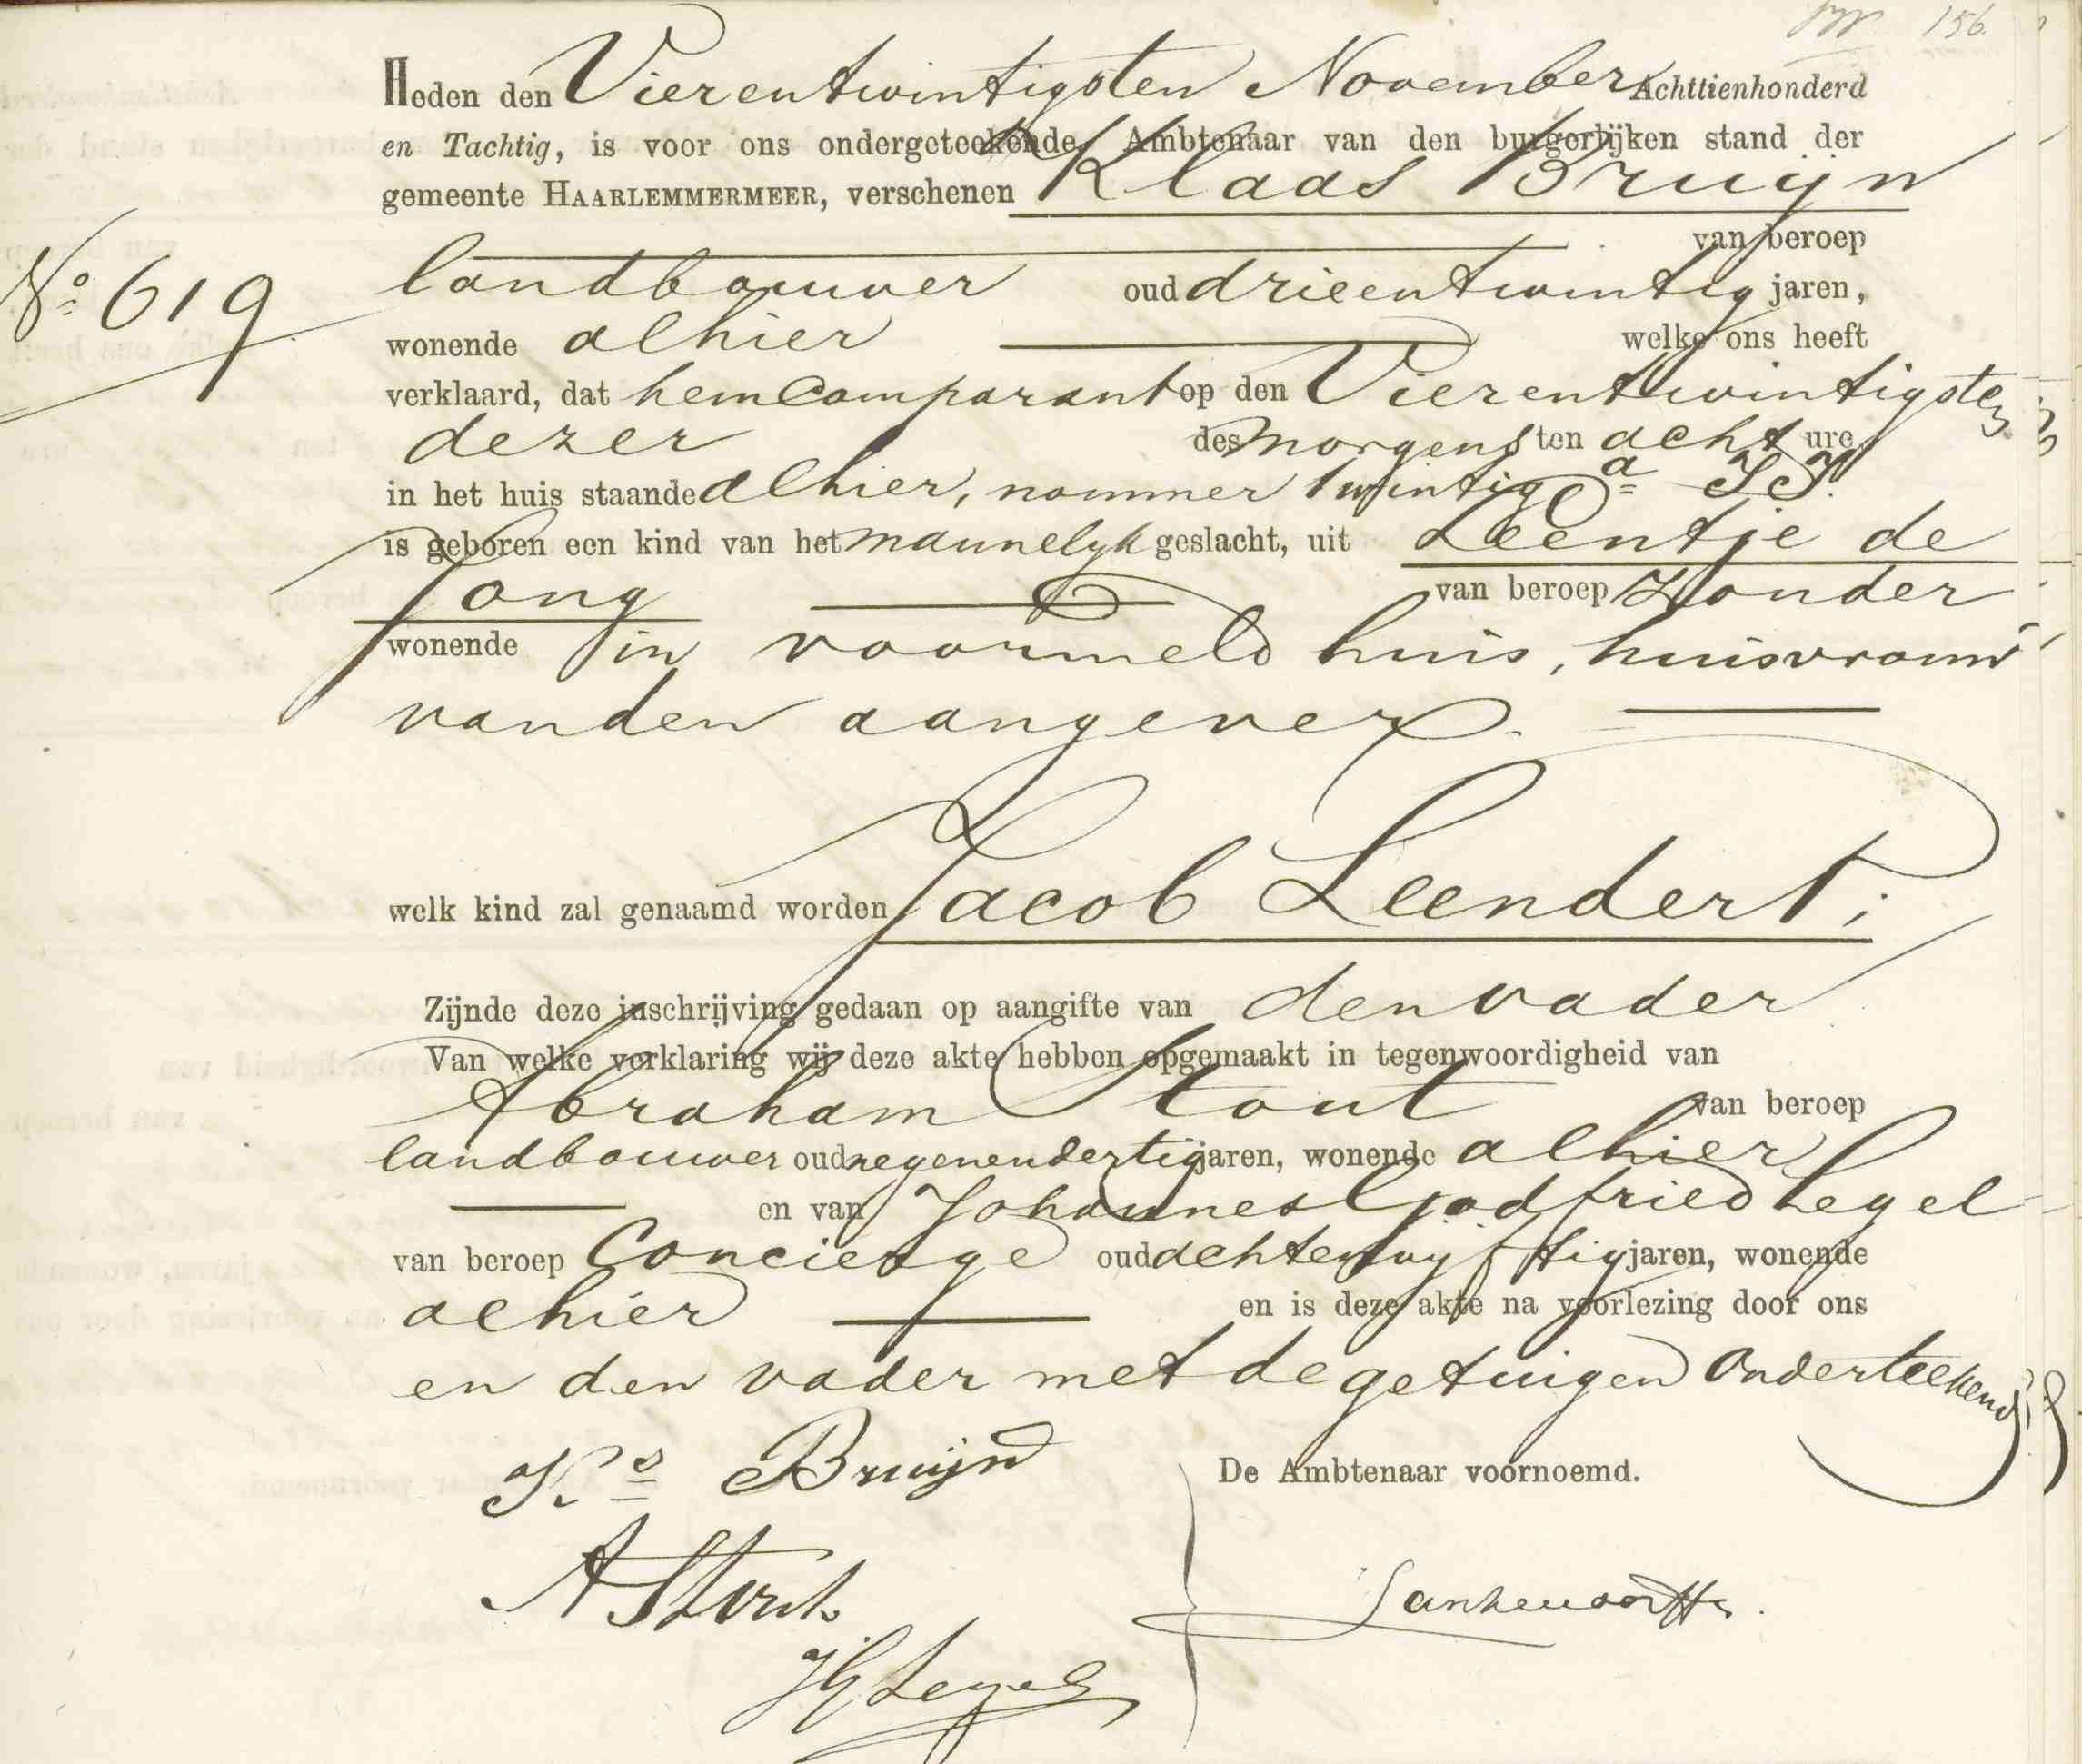 156
Heden den Vierentwintigsten November Achttienhonderd
en Tachtig, is voor ons ondergeteekende, Ambtenaar van den burgerlijken stand der
gemeente HAARLEMMERMEER, verschenen Klaas Bruijn
van beroep
No. 619
landbouwer oud drieentwintig jaren,
wonende alhier welke ons heeft
verklaard, dat hem Comparant op den Vierentwintigsten
dezer des morgens ten acht ure
in het huis staande alhier, nommer twintig a
is geboren een kind van het mannelyk geslacht, uit Leentje de
Jong van beroep zonder
wonende in voormeld huis, huisvrouw
van den aangever.
welk kind zal genaamd worden Jacob Leendert;
Zijnde deze inschrijving gedaan op aangifte van den vader
Van welke verklaring wij deze akte hebben opgemaakt in tegenwoordigheid van
Abraham Stout van beroep
landbouwer oud negenendertig jaren, wonende alhier
en van Johannes Godfried Legel
van beroep Concierge oud achtenvyftig jaren, wonende
alhier en is deze akte na voorlezing door ons
en den vader met de getuigen onderteekend.
Ks Bruijn
De Ambtenaar voornoemd.
A Stout.
JG Legel